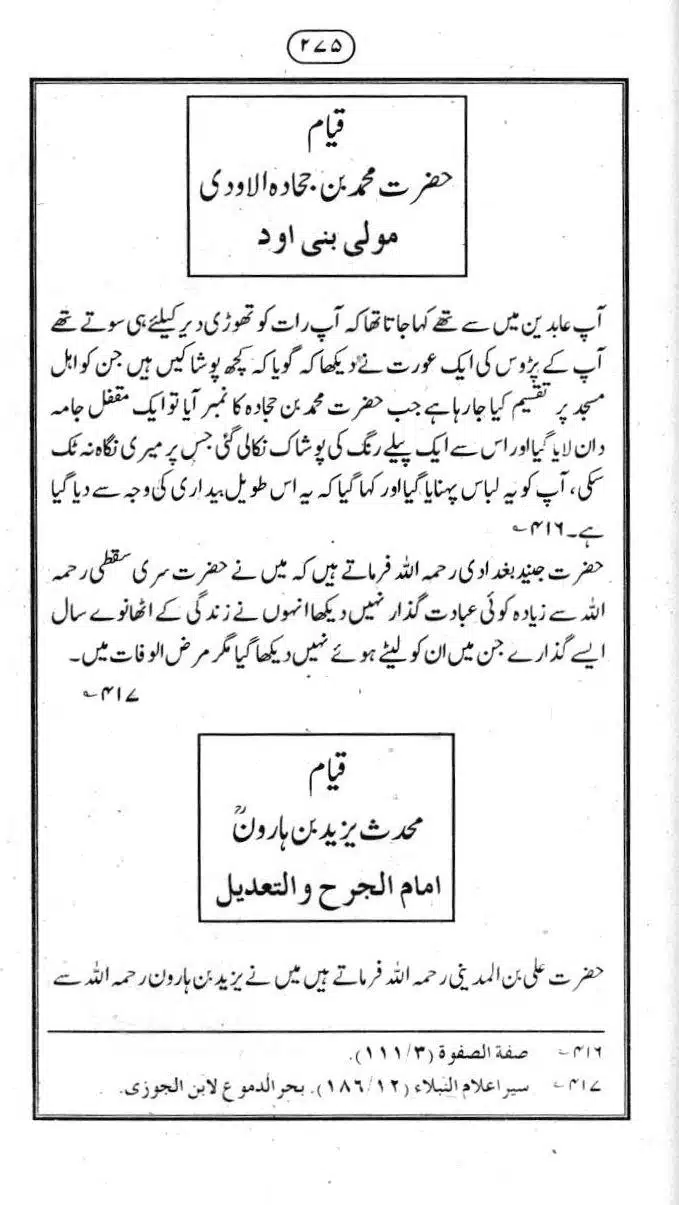 ۲۷۵
قیام
حضرت محمد بن جحادہ الاودی
مولی بنی اود
آپ عابدین میں سے تھے کہا جاتا تھا کہ آپ رات کو تھوڑی دیر کیلئے ہی سوتے تھے
آپ کے پڑوس کی ایک عورت نے دیکھا کہ گویا کہ کچھ پوشاکیں ہیں جن کو اہل
مسجد پر تقسیم کیا جا رہا ہے جب حضرت محمد بن حجادہ کا نمبر آیا تو ایک مقفل جامہ
دان لایا گیا اور اس سے ایک پیلے رنگ کی پوشاک نکالی گئی جس پر میری نگاہ نہ ٹک
سکی، آپ کو یہ لباس پہنایا گیا اور کہا گیا کہ یہ اس طویل بیداری کی وجہ سے دیا گیا
ہے۔ ۴۱۶؎
حضرت جنید بغدادی رحمہ اللہ فرماتے ہیں کہ میں نے حضرت سری سقطی رحمہ
اللہ سے زیادہ کوئی عبادت گذار نہیں دیکھا انہوں نے زندگی کے اٹھانوے سال
ایسے گذارے جن میں ان کو لیٹے ہوئے نہیں دیکھا گیا مگر مرض الوفات میں۔
۴۱۷؎
قیام
محدث یزید بن ہارونؒ
امام الجرح والتعدیل
حضرت علی بن المدینی رحمہ اللہ فرماتے ہیں میں نے یزید بن ہارون رحمہ اللہ سے
۴۱۶؎ صفة الصفوة (۱۱۱/۳).
۴۱۷؎ سیر اعلام النبلاء (۱۸۶/۱۲). بحر الدموع لابن الجوزی.